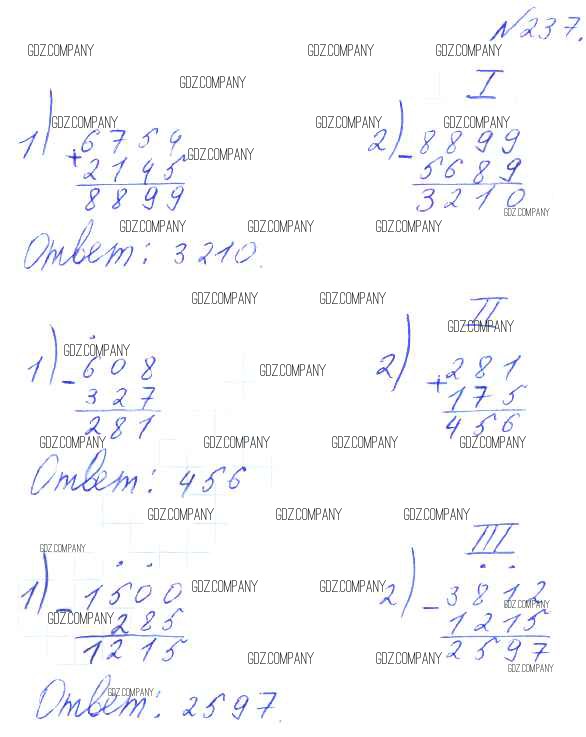 №237.
GDZ.COMPANY GDZ.COMPANY GDZ.COMPANY
GDZ.COMPANY
I
GDZ.COMPANY GDZ.COMPANY GDZ.COMPANY
1) + 6754 2) - 8899
GDZ.COMPANY
2145 5689
8899 3210
GDZ.COMPANY
GDZ.COMPANY GDZ.COMPANY GDZ.COMPANY
Ответ: 3210.
GDZ.COMPANY GDZ.COMPANY
II
GDZ.COMPANY
GDZ.COMPANY
1) - 608 2) + 281
GDZ.COMPANY
327 175
281 456
GDZ.COMPANY GDZ.COMPANY GDZ.COMPANY GDZ.COMPANY
Ответ: 456
GDZ.COMPANY GDZ.COMPANY GDZ.COMPANY
III
GDZ.COMPANY
GDZ.COMPANY GDZ.COMPANY
1) - 1500 2) - 3812
GDZ.COMPANY
GDZ.COMPANY
285 1215
1215 2597
GDZ.COMPANY GDZ.COMPANY
GDZ.COMPANY
GDZ.COMPANY
Ответ: 2597.